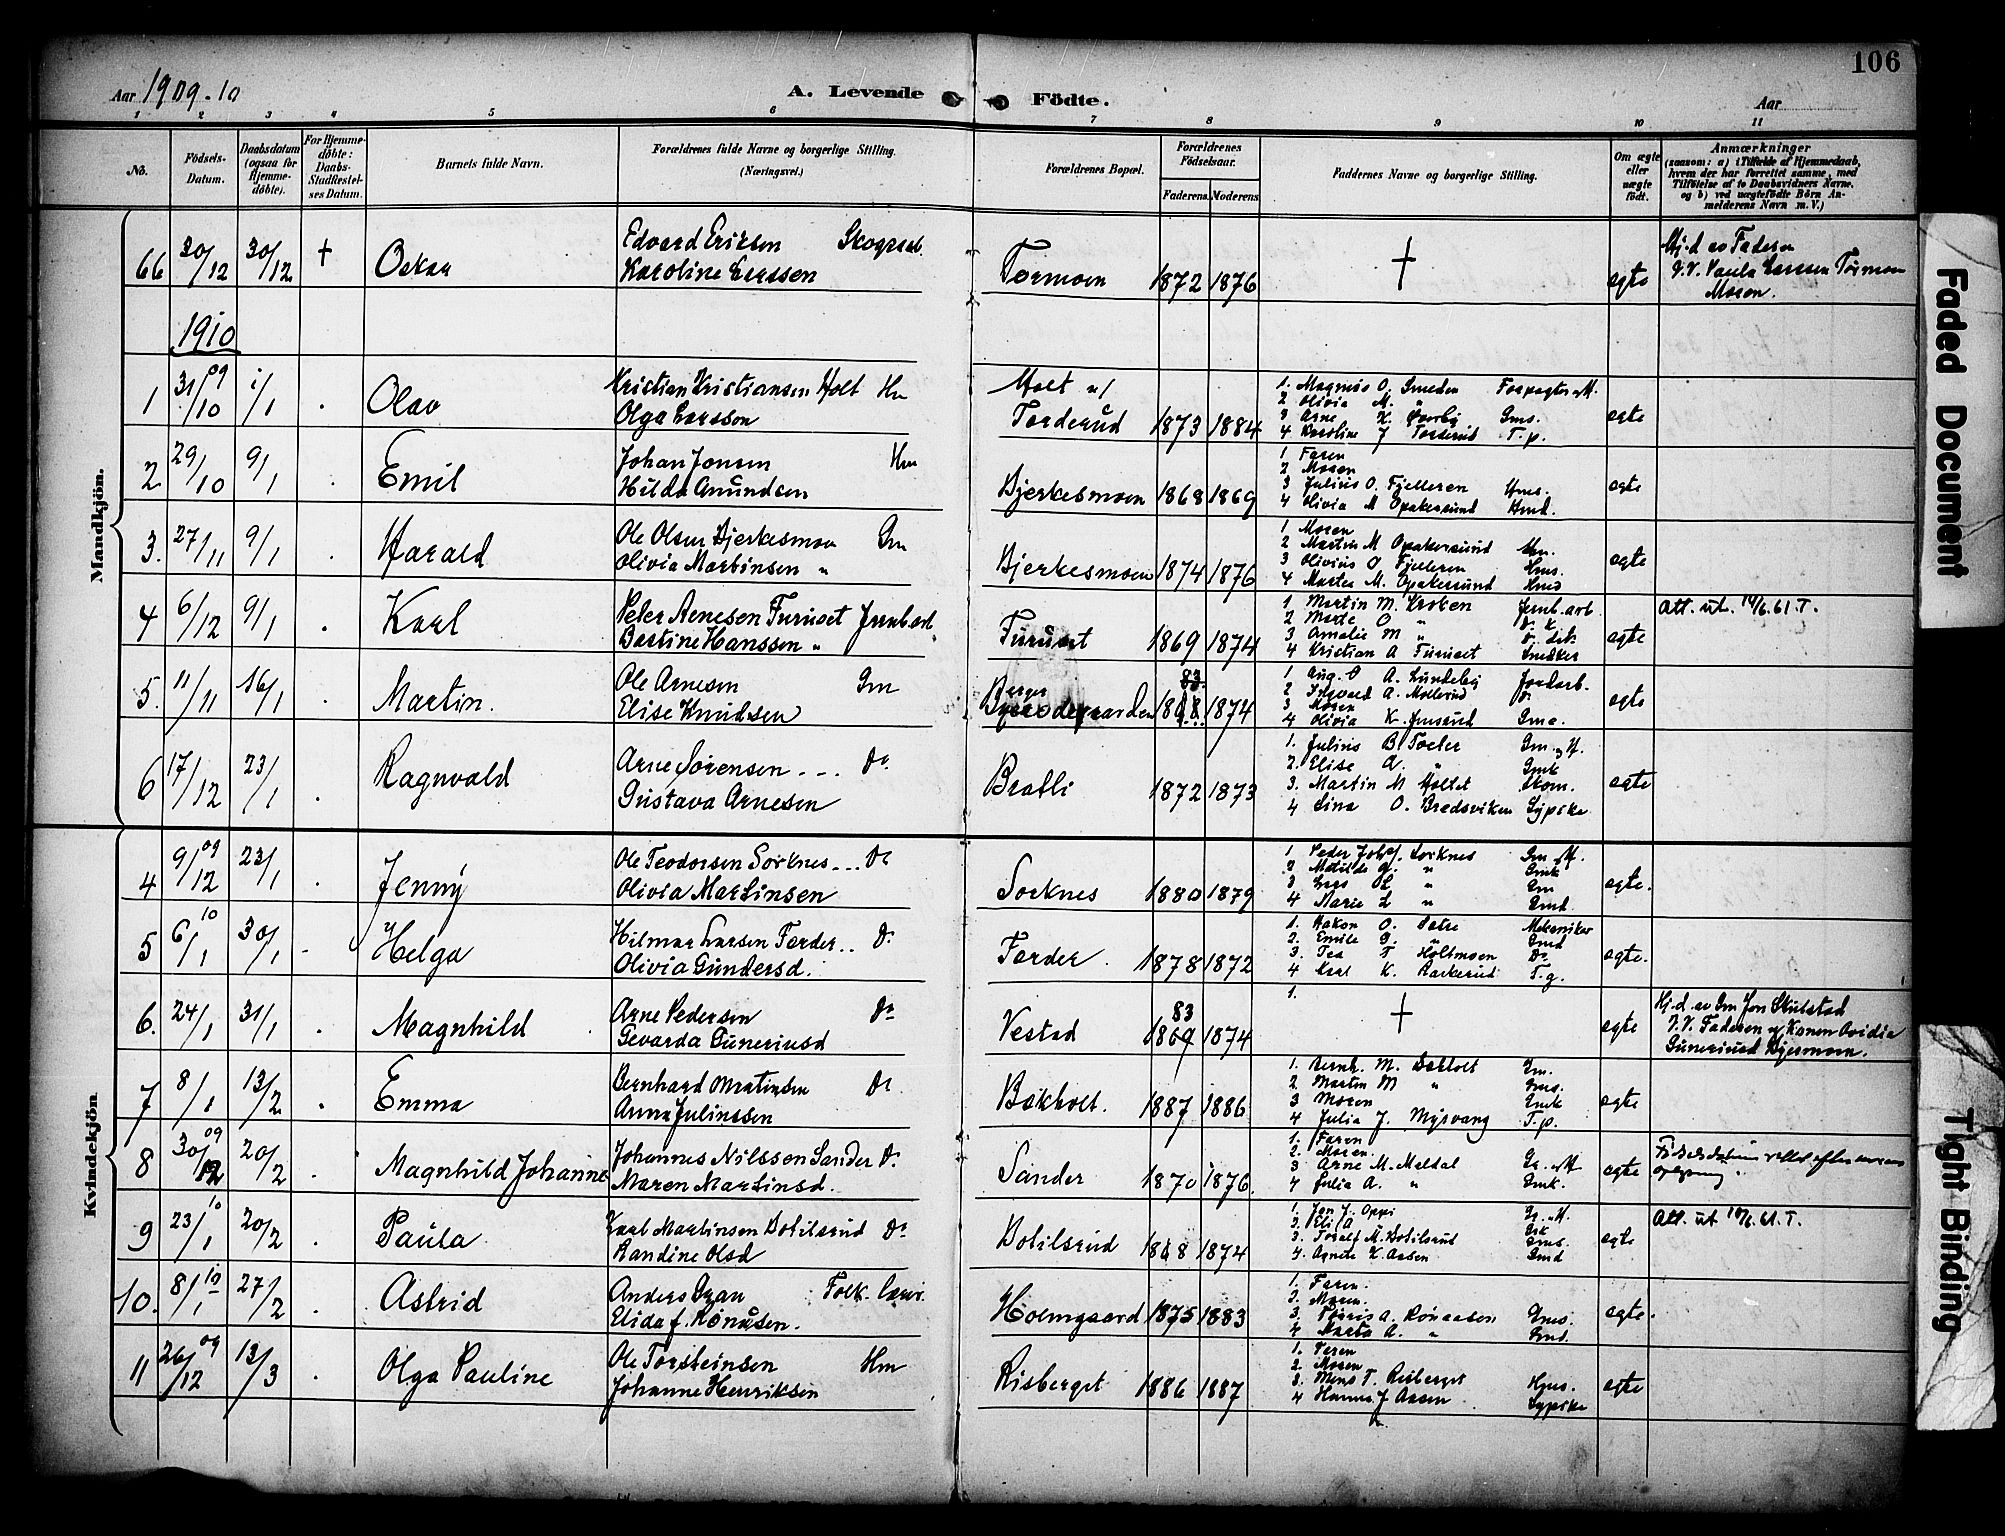 106
Aar 1909-10
A. Levende Födte.
Aar
1 2 3 4 5 6 7 8 9 10 11
No.
Födsels-Datum.
Daabsdatum (ogsaa for Hjemmedöbte).
For Hjemmedöbte: Daabs-Stadfestelses Datum.
Barnets fulde Navn.
Forældrenes fulde Navne og borgerlige Stilling.
(Næringsvei.)
Forældrenes Bopæl.
Forældrenes Födselsaar.
Faderens. Moderens.
Faddernes Navne og borgerlige Stilling.
Om ægte eller uægte födt.
Anmærkninger
(saasom: a) i Tilfælde af Hjemmedaab,
hvem der har forrettet samme, med
Tilföielse af to Daabsvidners Navne,
og b) ved uægtefödte Börn Anmelderens Navn m. V.)
Mandkjön.
66 30/12 30/12 + Oskar
Edvard Eriksen Skogsarb.
Karoline Larssen
Tørmoen 1872 1876 + egte
Hj.d av Faderen
V.V. Paula Larssen Tørmoen
Moren.
1910
1 31/10 09 1/1 Olav
Kristian Kristiansen Holt Hm
Olga Larsson
Holt u/
Torderud 1873 1884
1. Magnus O. Smeden Forpagter
2 Olivia M. "
3 Arne K. Øverby Gms.
4 Karoline J Torderud T.p.
egte
2 29/10 9/1 Emil
Johan Jonsen Hm
Hilda Amundsen
Bjerkesmoen 1868 1869
1 Faren
2 Moren
3 Julius O. Fjelleren Hms.
4 Olivia M Opakersund Hmd.
egte
3. 27/11 9/1 Harald
Ole Olsen Bjerkesmoen Gm
Olivia Martinsen "
Bjerkesmoen 1874 1876
1. Moren
2 Martin M Opakersund Hm.
3 Olivius O Fjelleren Hms.
4 Martea M. Opakersund Hmd
egte
4 6/12 9/1 Karl
Peter Arnesen Furuset Jernb.arb.
Bertine Hanssen "
Furuset 1869 1874
1 Martin M. Kroken Jernb.arb.
2 Marte O "
3 Amalie M "
4 Kristian A Furuset Snedker
egte
Att. ut. 14/6.61.T.
5. 11/11 16/1 Martin.
Ole Arnesen Gm
Elise Knudsen
Berger
83 1874
1 Aug. O A. Lundeby Jordarb.
2 Ingvard A. Møllerud
3 Moren
4 Olivia K. Jmsrud
egte
6 17/12 23/1 Ragnvald
Arne Sørensen ... Do
Gustava Arnesen
Bratli 1872 1873
1. Julius B. Toeler Gm. M.
2. Elise A. " Gmk
3. Martin M Moldet Skom.
4 Lina O. Bredsviken Sypike
egte
Kvindekjön
4 9/12 09 23/1 Jenny
Ole Teodorsen Sorknes ... Do
Olivia Martinsen
Sorknes 1880 1879
1 Peder Johs. Sorknes Gm. M.
2 Matilde G. " Gmk
3 Lars L " Gm
4 Marie L " Gmd.
egte.
5 6/1 10 30/1 Helga
Hilmar Larsen Forder .. Do
Olivia Gundersd.
Forder. 1878 1872
1. Hakon O. Sætre Mekaniker
2. Emile G. " Gmd
3. Tea T Holtmoen Do
4 Karl K. Rackerud T.g.
egte.
6. 24/1 31/1 Magnhild
Arne Pedersen Do
Gevarda Guneriusd
Vestad 83 1869 1874
1. + egte
Hj.d. av Gm Jon Skulstad
V.V. Faderen og Konen Ovidia
Guneriusd Bjermoen.
7 8/1 13/2 Emma
Bernhard Martinsen Do
Anna Julinssen
Bakholt. 1887 1886
1. Bernh. M. Bakholt Gm.
2. Martin M " Gms.
3 Moren Gmk
4 Julia J. Myrvang T.p.
egte
8 30/12 09 20/2 Magnhild Johanne
Johannes Nilssen Sander Do
Maren Martinsd.
Sander 1870 1876
1. Faren
2. Moren
3 Arne M. Meldal
4 Julia A. " Gmk.
egte
Fødselsdatum rettet efter morens
opgivning.
9 23/1 10 20/2 Paula
Karl Martinsen Botilsrud Do
Randine Olsd
Botilsrud 1868 1874
1. Jon J. Oppi
2. Eli A
3. Toralf M. Botilsrud Gms.
4. Agnete K Aasen Gmd
egte
Att. ut 14/6.61.T.
10. 8/1 10 27/2 Astrid
Anders Gran Folk. lærer.
Elida f. Rønåsen.
Holmgaard 1875 1883
1. Faren.
2. Moren.
3. A. Rønaasen Gms.
4. Marta A. " Gmd.
egte.
11 26/12 09 13/3 Olga Pauline
Ole Torsteinsen Hm
Johanne Henriksen
Risberget 1886 1887
1. Faren
2. Moren
3. Mens T. Risberget Hms.
4 Hanna J Aasen Sypike
egte
Faded Document
Tight Binding